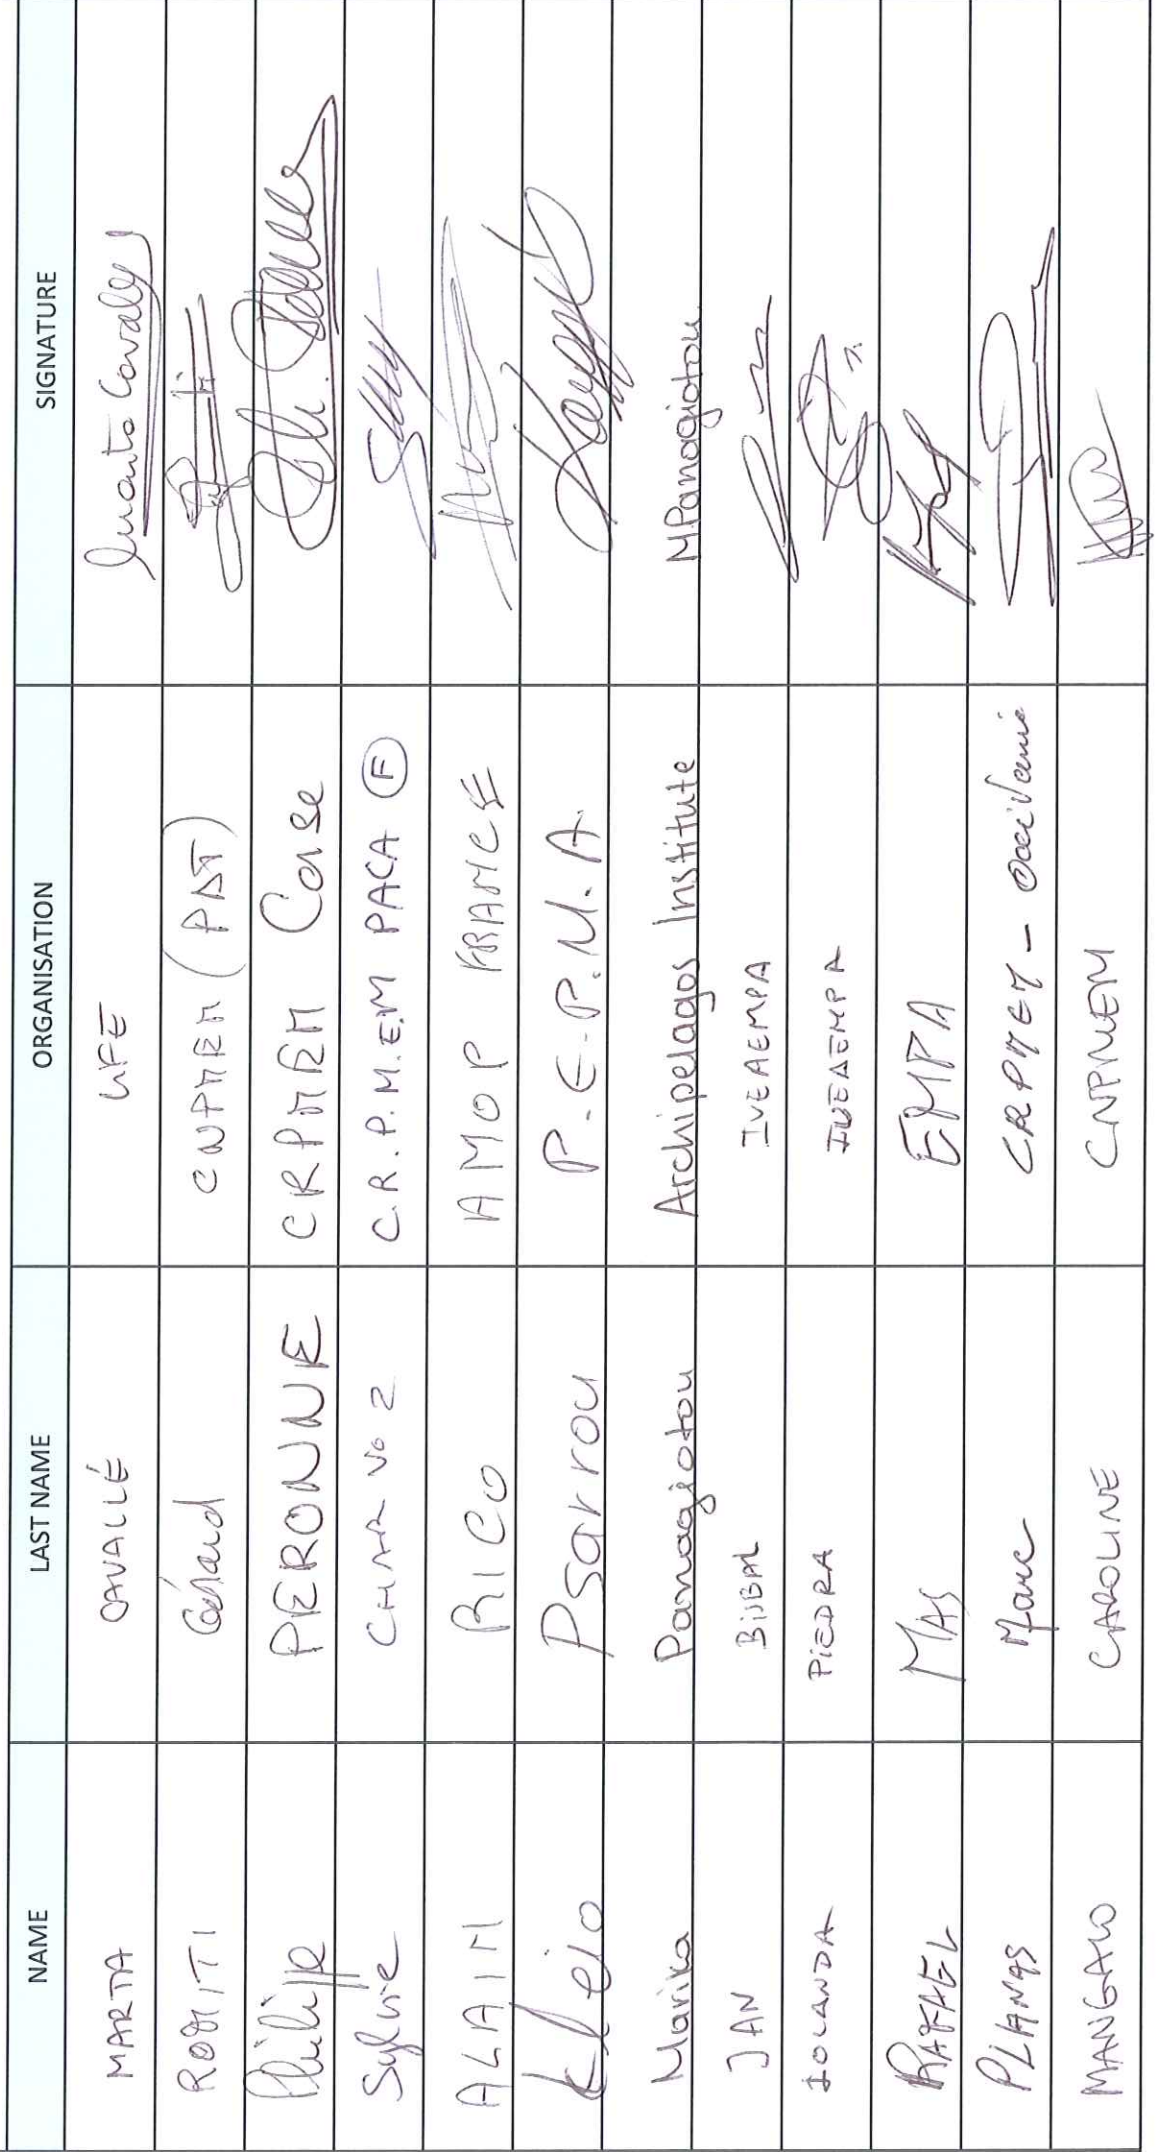 NAME LAST NAME ORGANISATION SIGNATURE
MARTA CAVALLÉ LIFE Marta Cavallé
ROMITI Gérard CNPMEM
Philippe PERONNE CRPMEM Corse
Sylvie C.R.P.M.EM PACA F
ALAIN RICO AMOP FRANCE
Kleio Psarrou P.E.P.M.A.
Marika Panagiotou Archipelagos Institute MPanagiotou
JAN BIJBAL IVEAEMPA
IOLANDA PIEDRA IVEAEMPA
RAFAEL MAS EMPA
PLANAS Marc CRPMEM - Occitanie
MANGALO CAROLINE CNPMEM